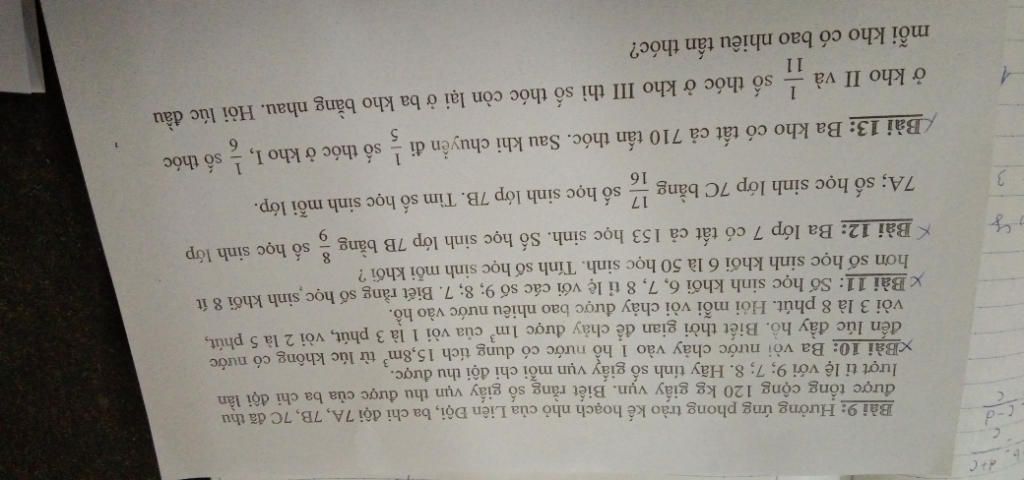 Bài 9: Hưởng ứng phong trào kế hoạch nhỏ của Liên Đội, ba chi đội 7A, 7B, 7C đã thu
được tổng cộng 120 kg giấy vụn. Biết rằng số giấy vụn thu được của ba chi đội lần
lượt tỉ lệ với 9; 7; 8. Hãy tính số giấy vụn mỗi chi đội thu được.
Bài 10: Ba vòi nước chảy vào 1 hồ nước có dung tích 15,8m³ từ lúc không có nước
đến lúc đầy hồ. Biết thời gian để chảy được 1m³ của vòi 1 là 3 phút, vòi 2 là 5 phút,
vòi 3 là 8 phút. Hỏi mỗi vòi chảy được bao nhiêu nước vào hồ.
Bài 11: Số học sinh khối 6, 7, 8 tỉ lệ với các số 9; 8; 7. Biết rằng số học sinh khối 8 ít
hơn số học sinh khối 6 là 50 học sinh. Tính số học sinh mỗi khối ?
Bài 12: Ba lớp 7 có tất cả 153 học sinh. Số học sinh lớp 7B bằng 8/9 số học sinh lớp
7A; số học sinh lớp 7C bằng 17/16 số học sinh lớp 7B. Tìm số học sinh mỗi lớp.
Bài 13: Ba kho có tất cả 710 tấn thóc. Sau khi chuyển đi 1/5 số thóc ở kho I, 1/6 số thóc
ở kho II và 1/11 số thóc ở kho III thì số thóc còn lại ở ba kho bằng nhau. Hỏi lúc đầu
mỗi kho có bao nhiêu tấn thóc?